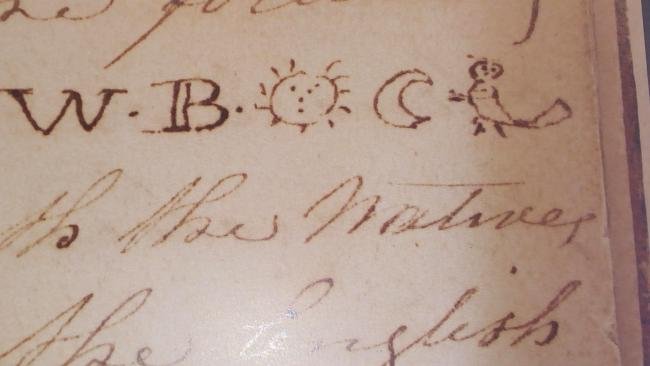 the
W. B.
th the Natives
the English